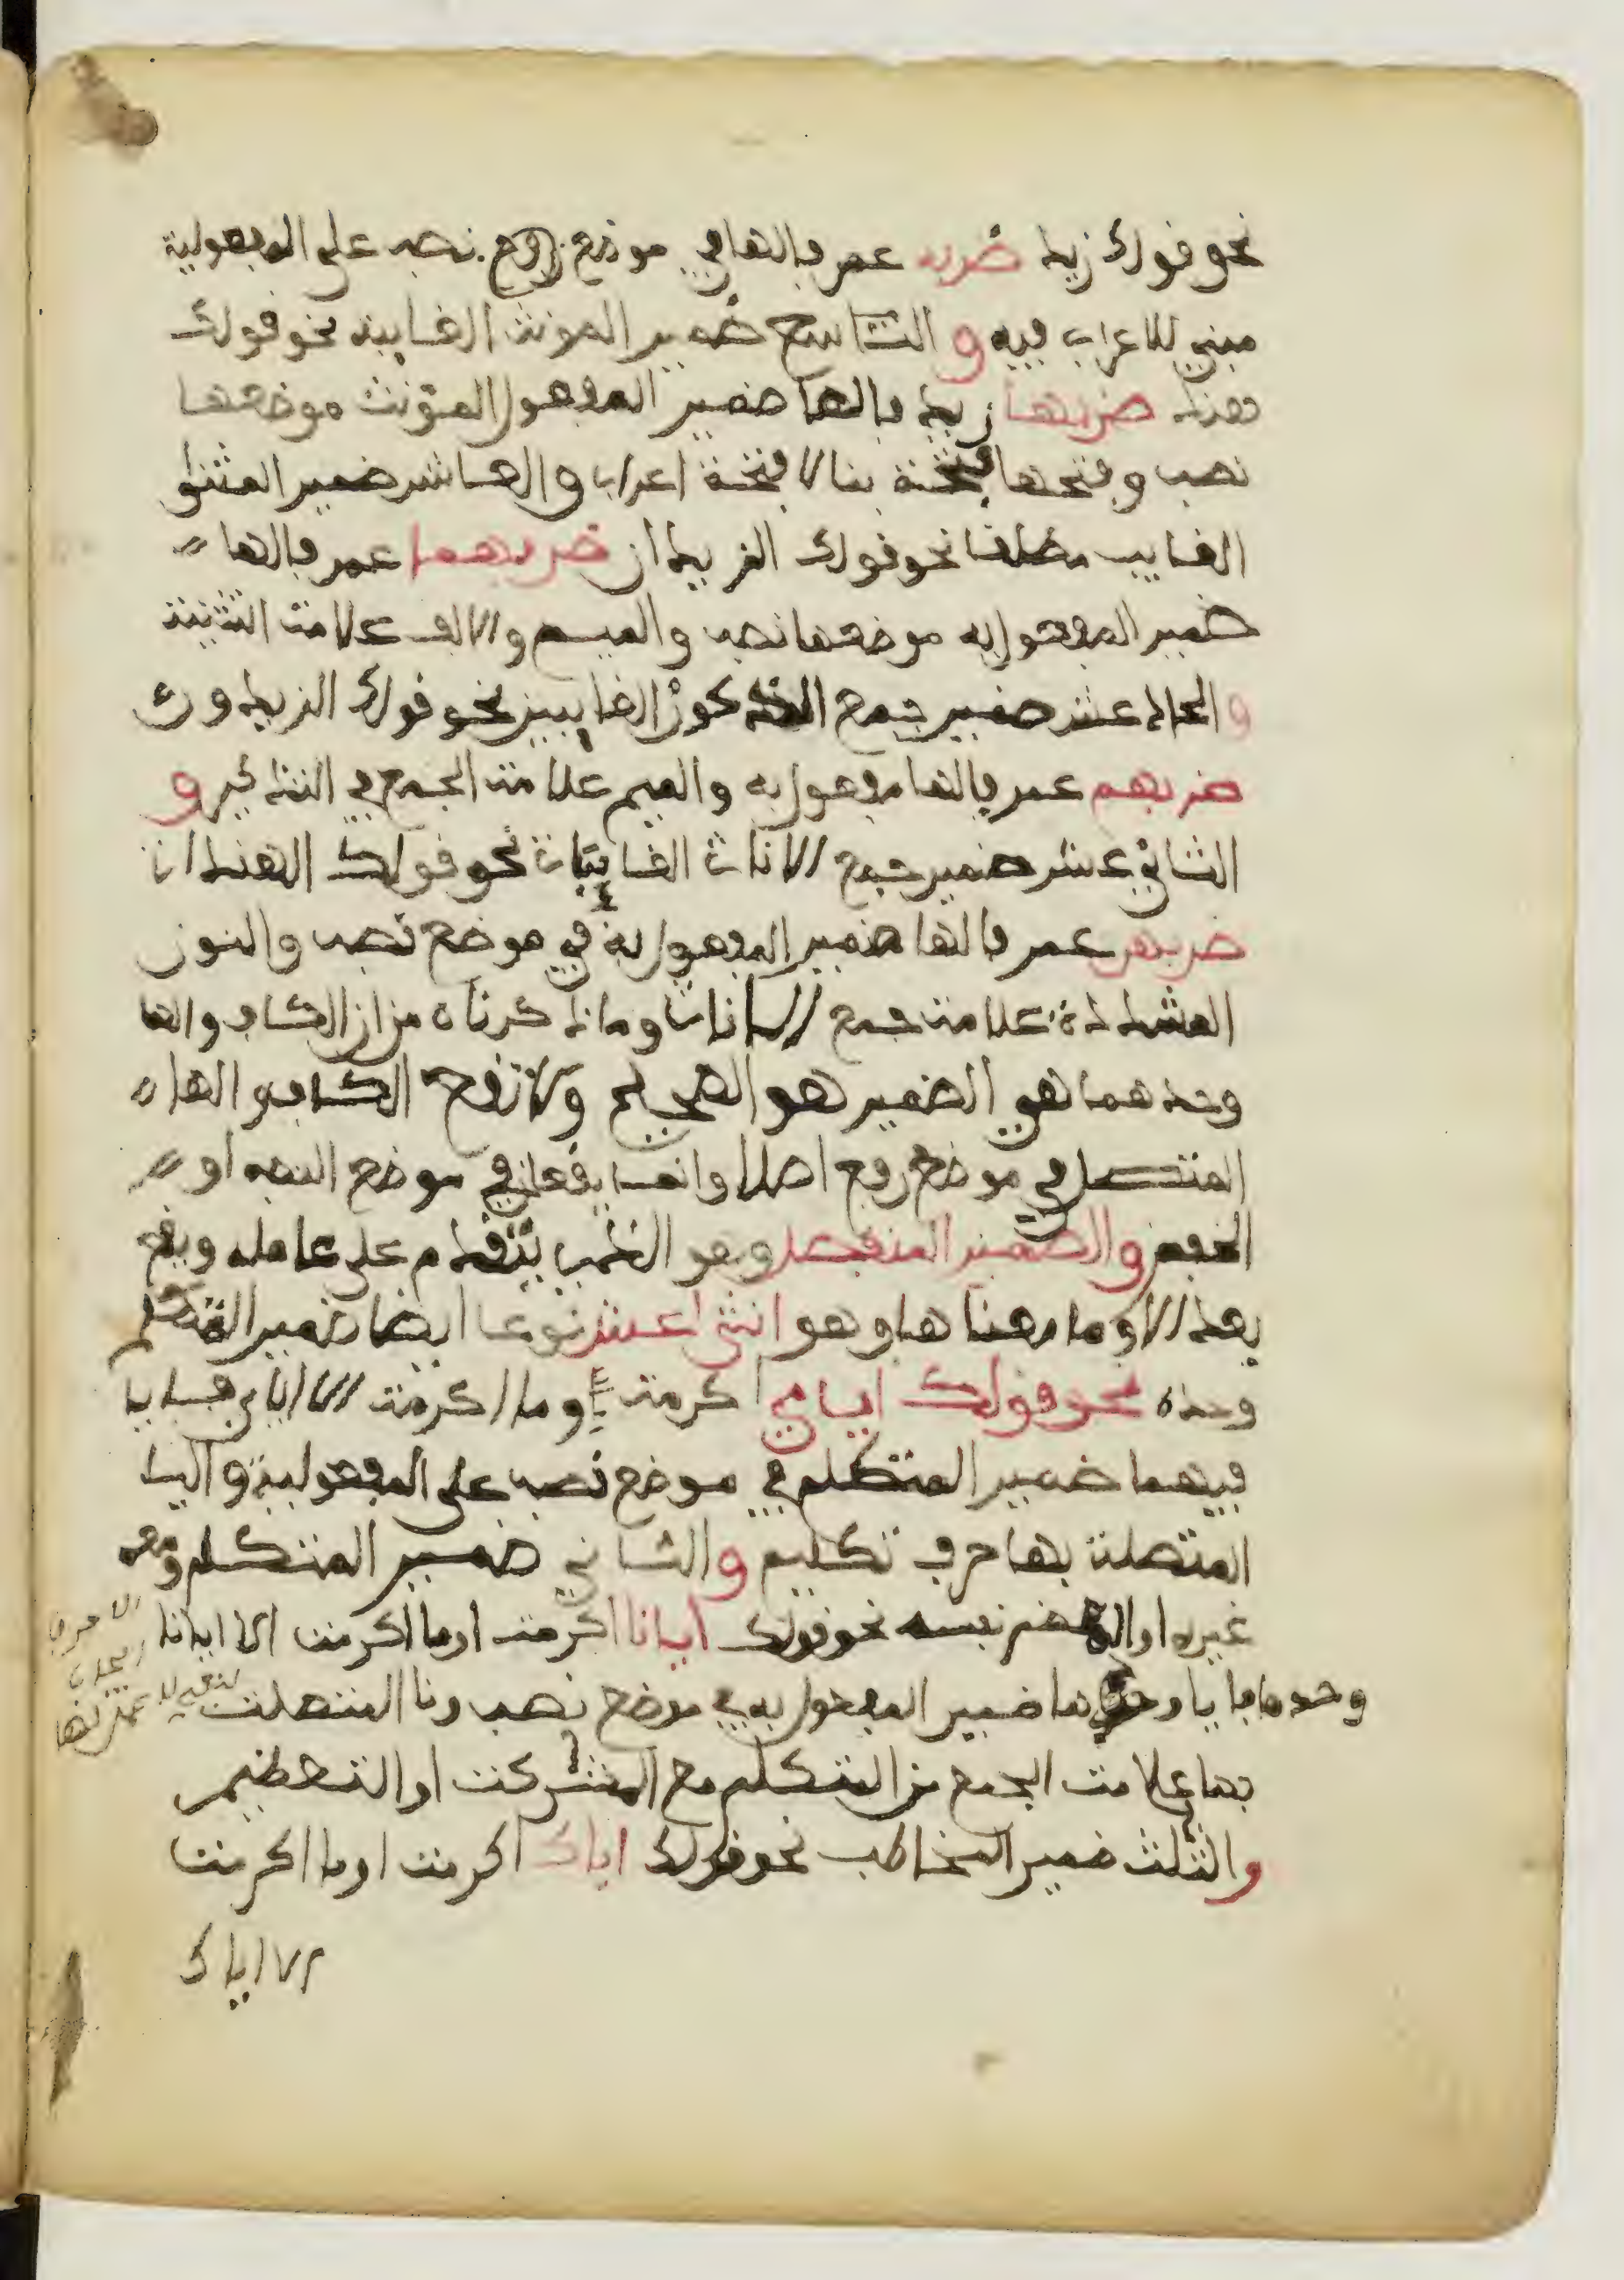 نحو قولك زيد ضربه عمر فالهافي موضع رفع نصب على المفعولية
مبني للاعراب فيه والتاسع ضمير المونث الغايبة نحو قولك
هند ضربها زيد فالها ضمير المفعول المؤنث موضعها
نصب وفتحها فتحة بنا لا فتحة اعراب والعاشر ضمير المثنى
الغايب مطلقا نحو قولك الزيدان ضربهما عمر فالها
ضمير المفعول به موضعها نصب والميم والالف علامت التثنية
والحاد عشر ضمير جمع الذكور الغايبين نحو قولك الزيدون
ضربهم عمر فالها مفعول به والميم علامت الجمع في التذكير و
الثاني عشر ضمير جمع الاناث الغايبات نحو قولك الهندات
ضربهن عمر فالها ضمير المفعول به في موضع نصب والنون
المشددة علامت جمع الاناث وما ذكرناه من ان الكاف والها
وحدهما هي الضمير هو الصحيح ولا تقع الكاف والها
المتصل في موضع رفع اصلا وانما يقعان في موضع النصب او
الخفض والضمير المنفصل وهو الذي يتقدم على عامله ويقع
بعد الا وما معناها وهو اثنى عشر نوعا ايضا ضمير المتكلم
وحده نحو قولك اياي اكرمت وما اكرمت الا اياي فايا
فيهما ضمير المتكلم في موضع نصب على المفعولية واليا
المتصلت بها حرف تكليم والثاني ضمير المتكلم ومعه
غيره او المعظم نفسه نحو قولك ايانا اكرمت او ما اكرمت الا ايانا
وحدها فايا وحدها ضمير المفعول به في موضع نصب ونا المتصلت
بها علامت الجمع من المتكلم مع المشركت او التعظيم
والثلث ضمير المخاطب نحو قولك اياك اكرمت او ما اكرمت
الا اياك